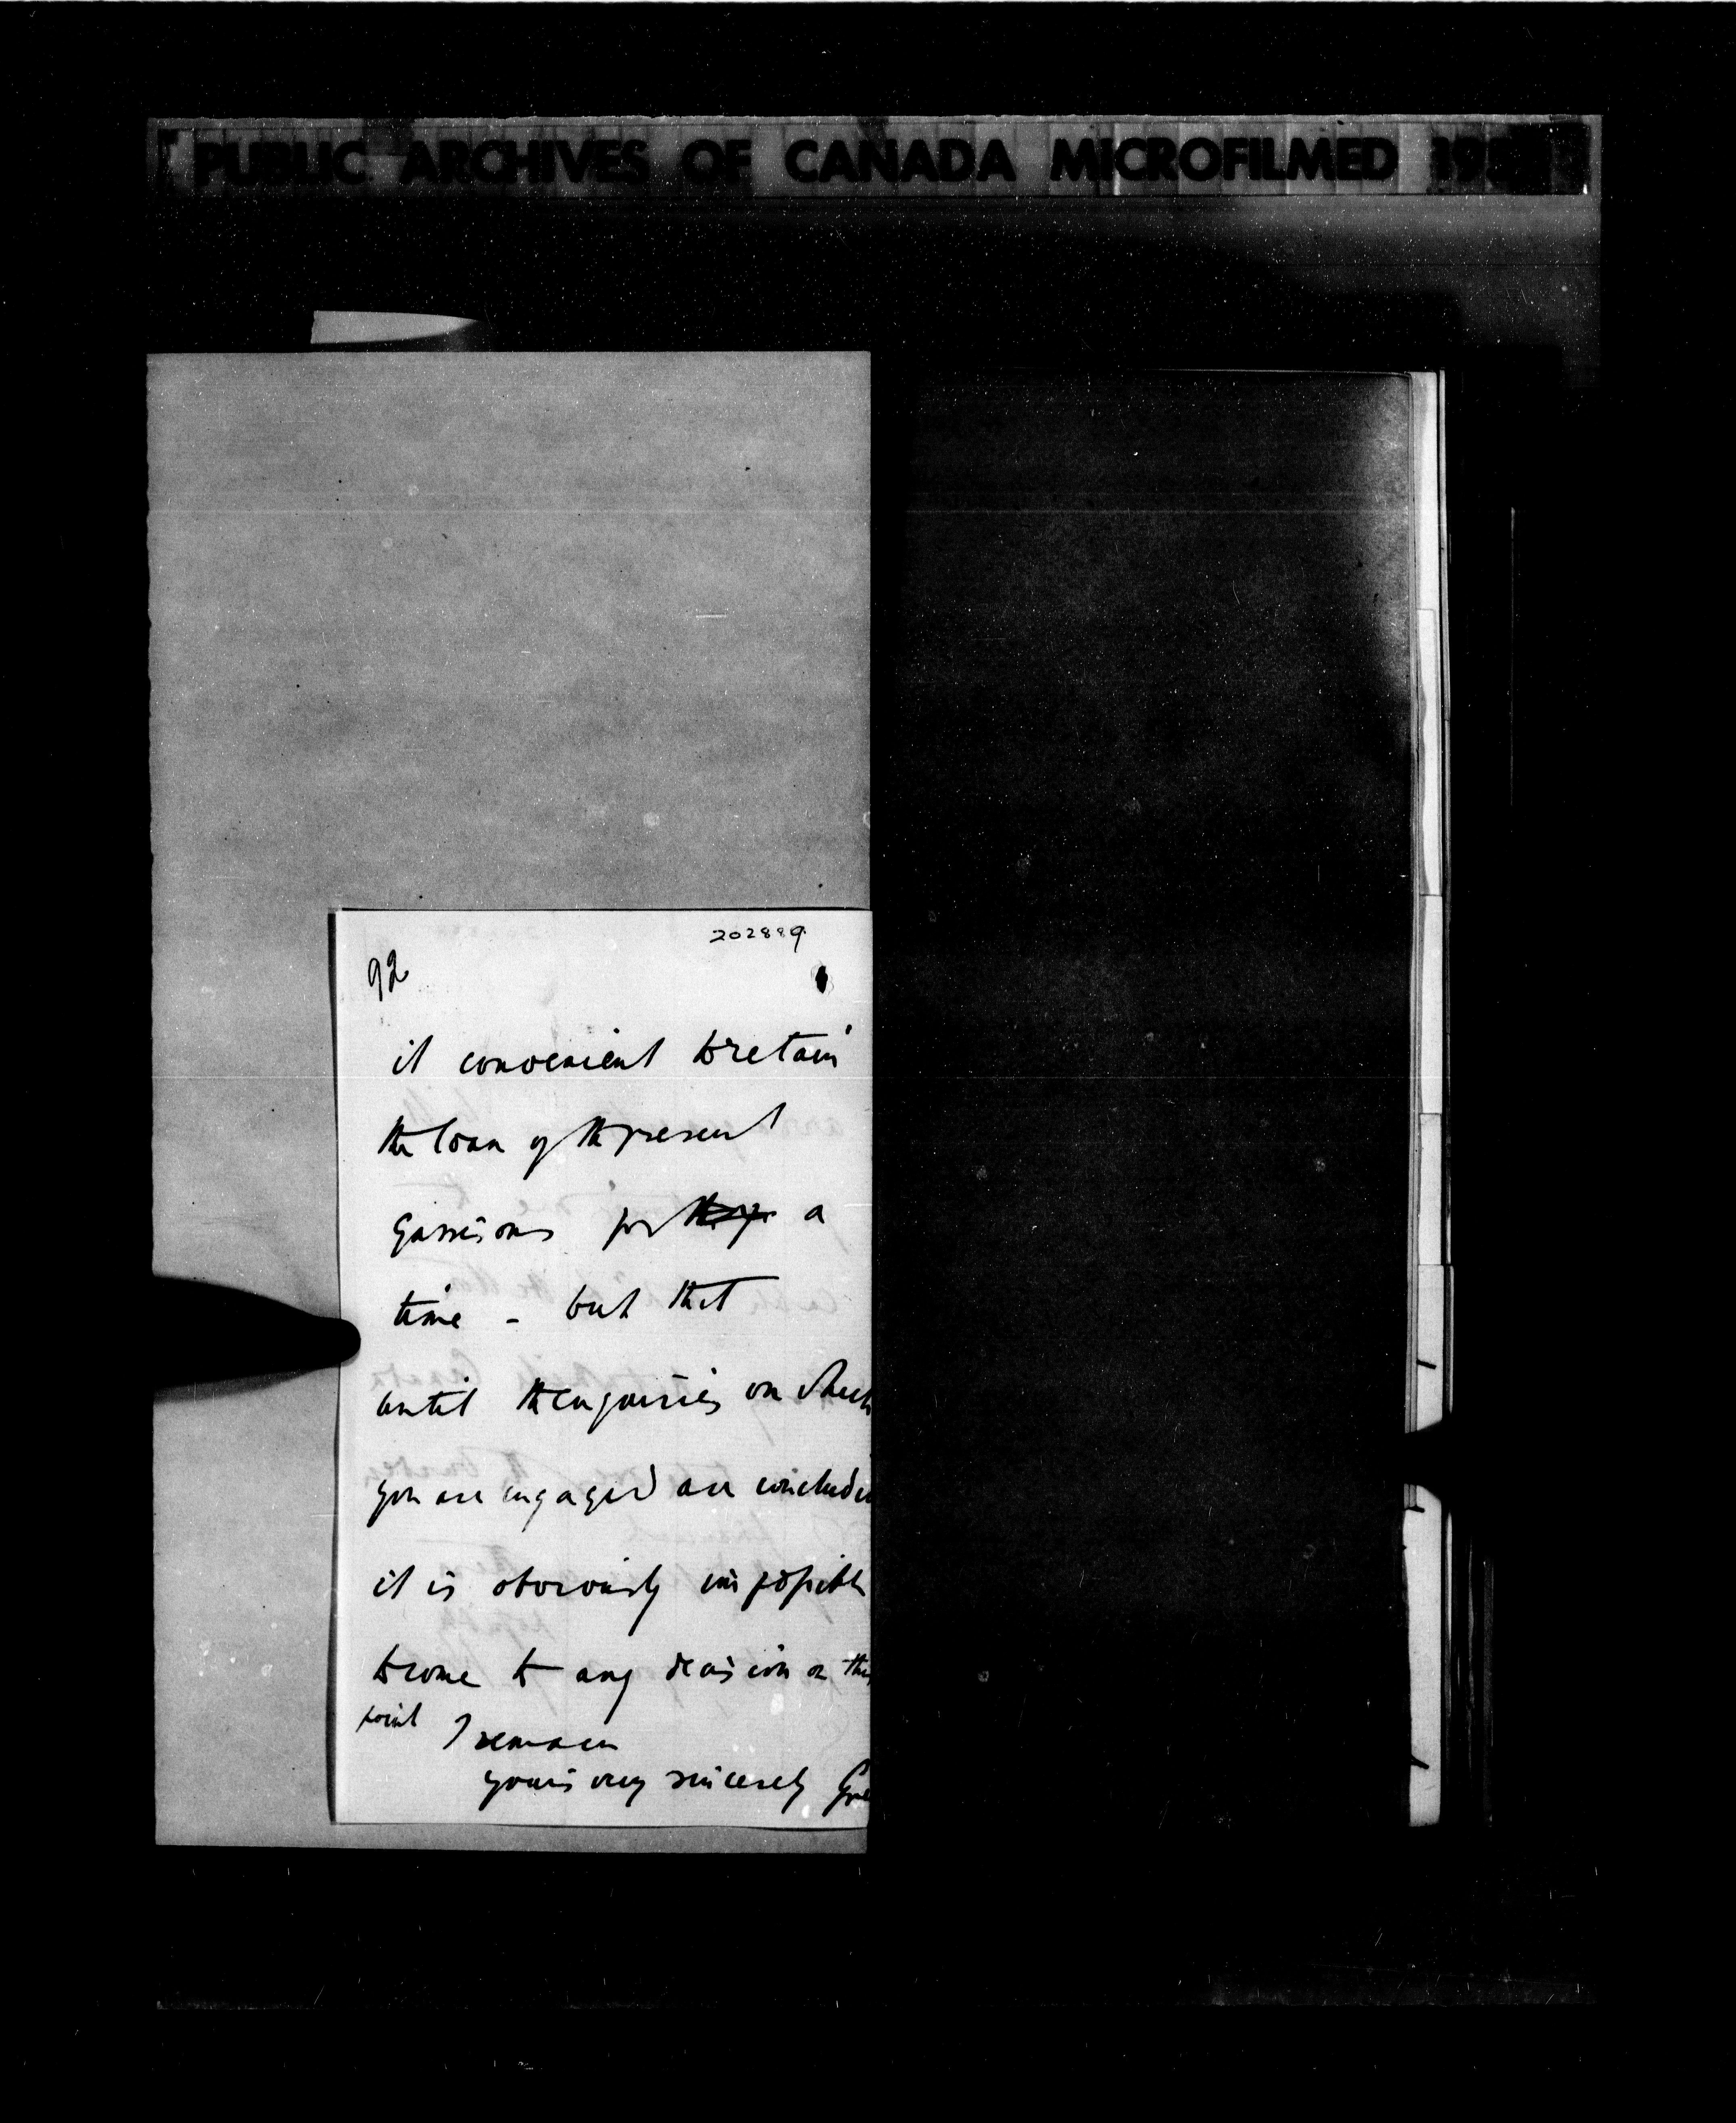 PUBLIC ARCHIVES OF CANADA MICROFILMED 195
202889
92
it convenient to retain
the loan of the present
garrisons for a
time - but that
until the enquiries on which
you are engaged are concluded
it is obviously impossible
to come to any decision on this
point I remain
yours very sincerely Gre